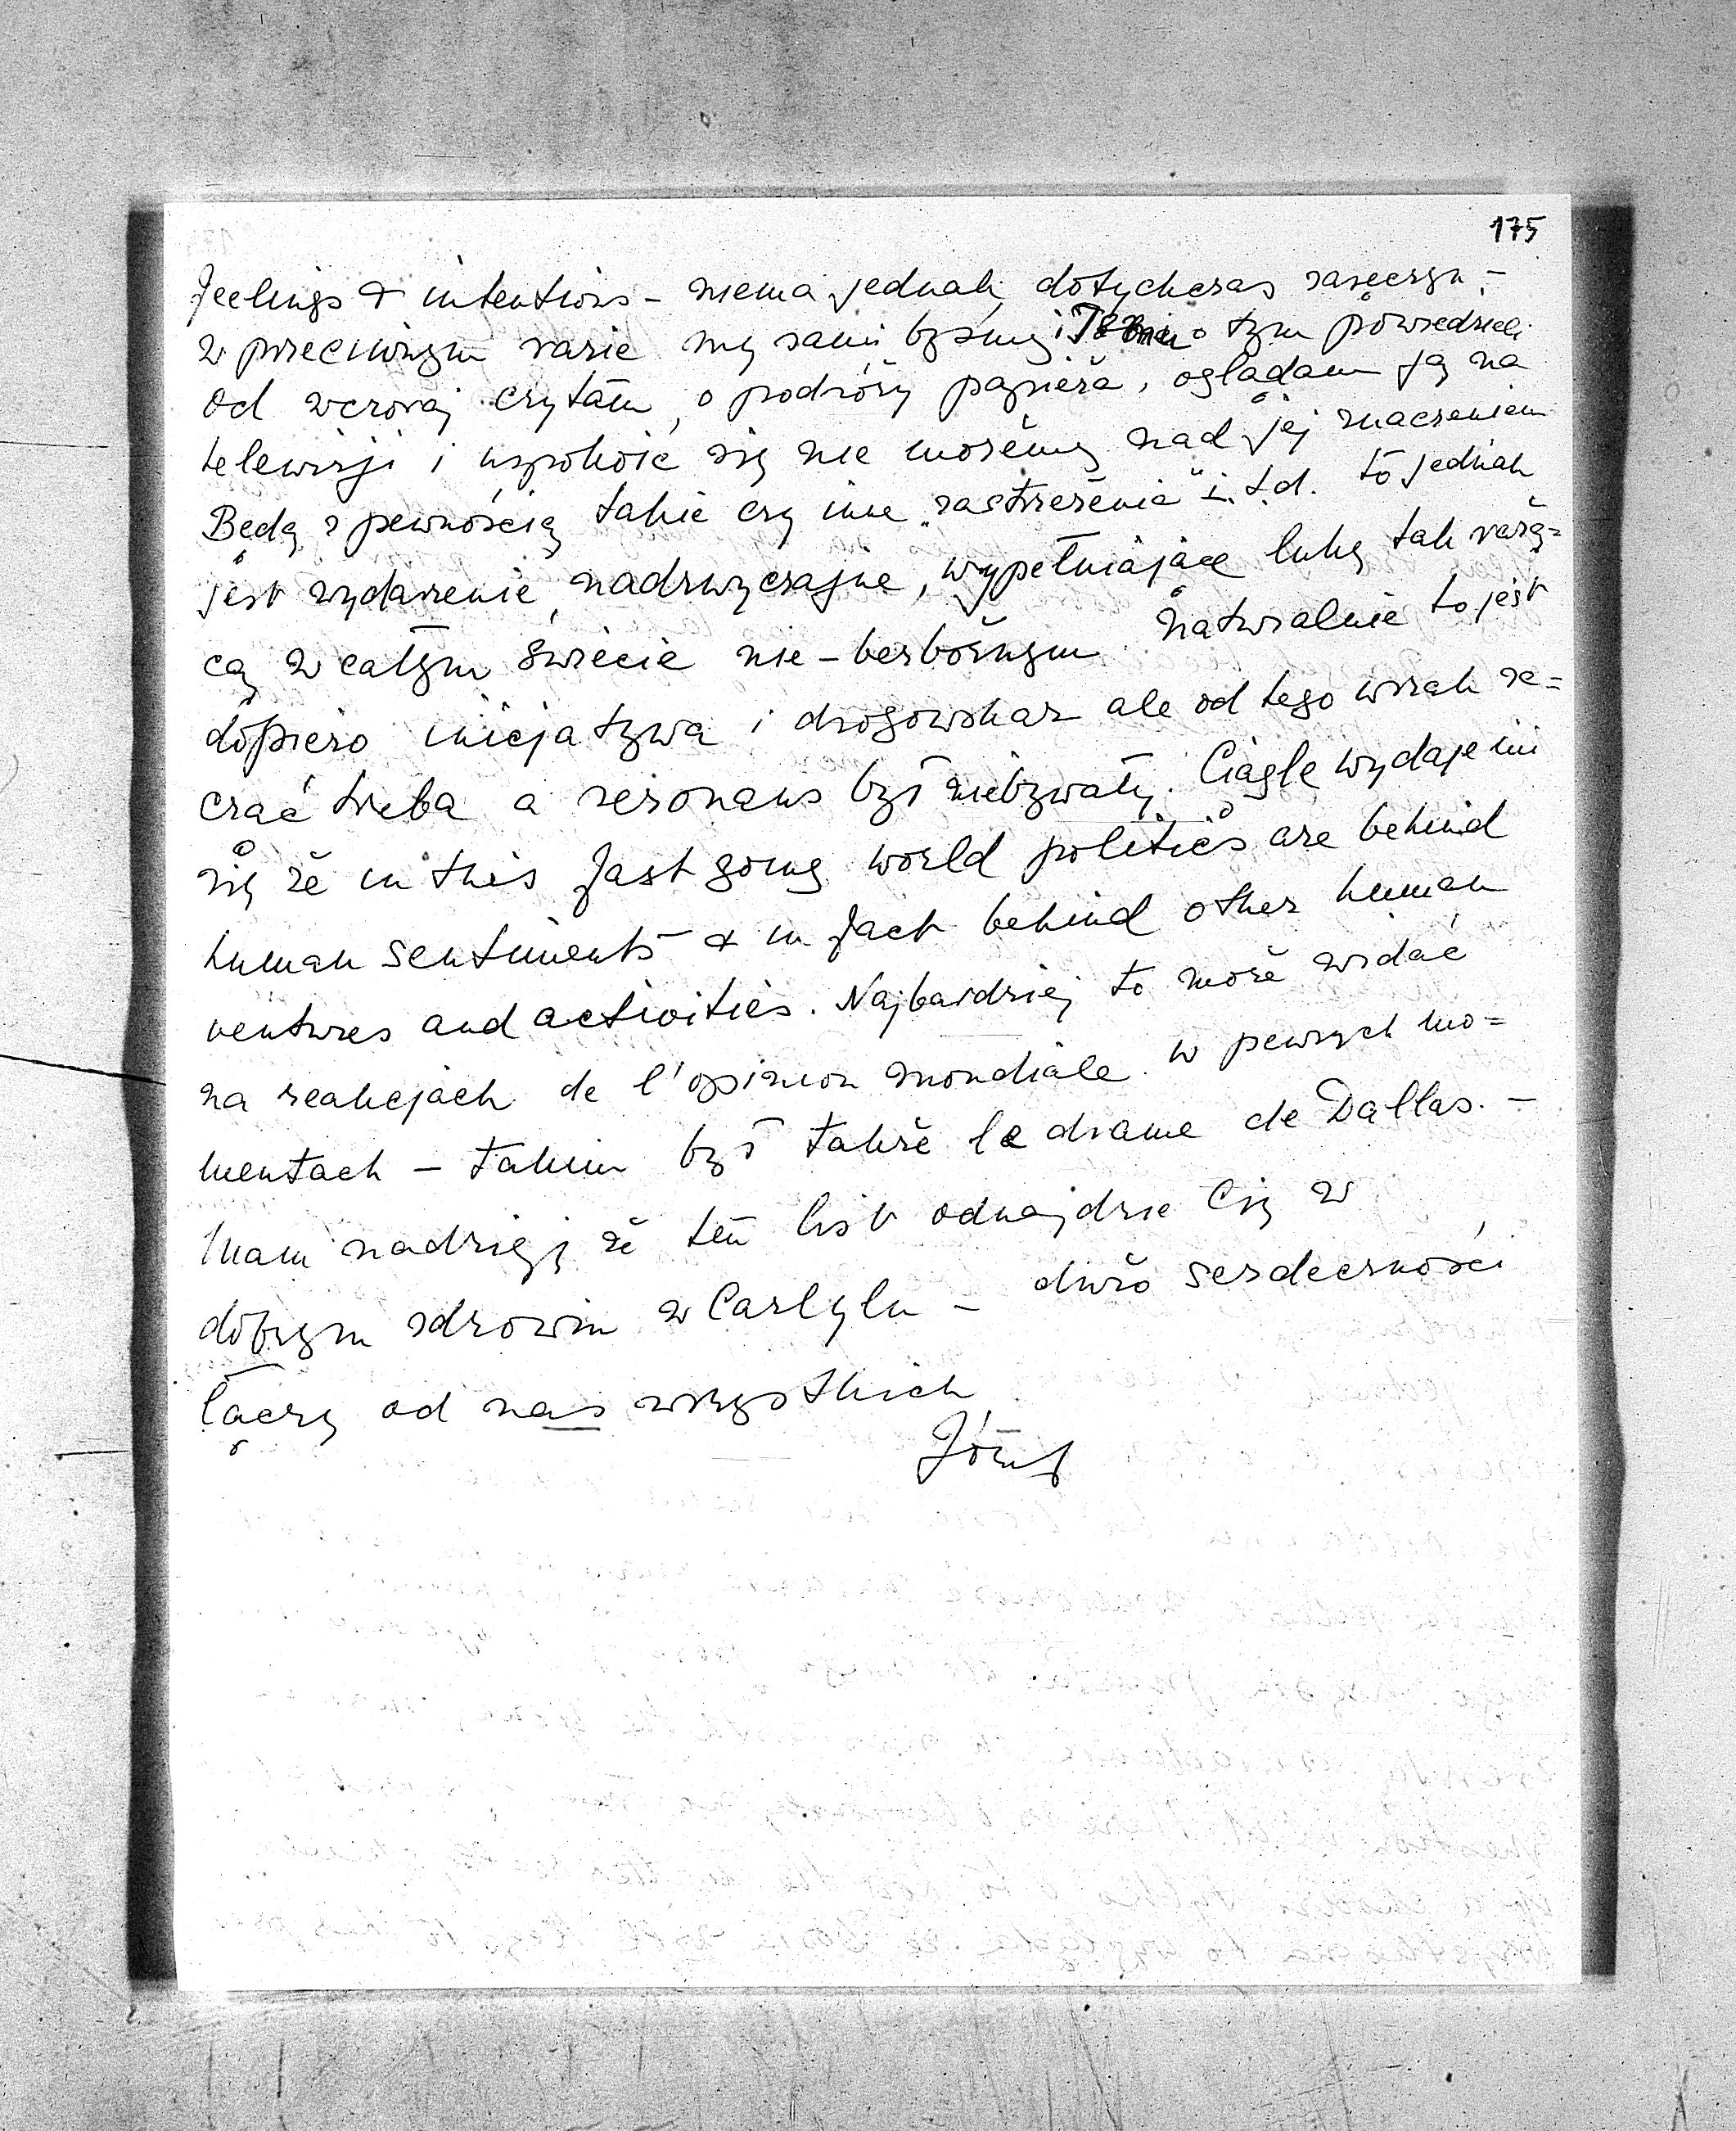 175
feelings & intentions – niema jednak dotychczas zaręczyn. –
w przeciwnym razie my sami byśmy Tobie o tym powiedzieli.
Od wczoraj czytam o podróży papieża, oglądam ją na
telewizji i uspokoić się nie możemy nad jej znaczeniem
Będą z pewnością takie czy inne „zastrzeżenia" i.t.d. to jednak
jest wydarzenie nadzwyczajne, wypełniające lukę tak rażą=
cą w całym świecie nie-bezbożnym. Naturalnie to jest
dopiero inicjatywa i drogowskaz ale od tego wszak za=
czać trzeba a rezonans był niebywały. Ciągle wydaje mi
się że in this fast going world politics are behind
human sentiments & in fact behind other human
ventures and activities. Najbardziej to może widać
na reakcjach de l'opinion mondiale w pewnych mo=
mentach – takim był także le drame de Dallas. –
Mam nadzieję że ten list odnajdzie Cię w
dobrym zdrowiu w Carlylu – dużo serdeczności
łączę od nas wszystkich
Józef